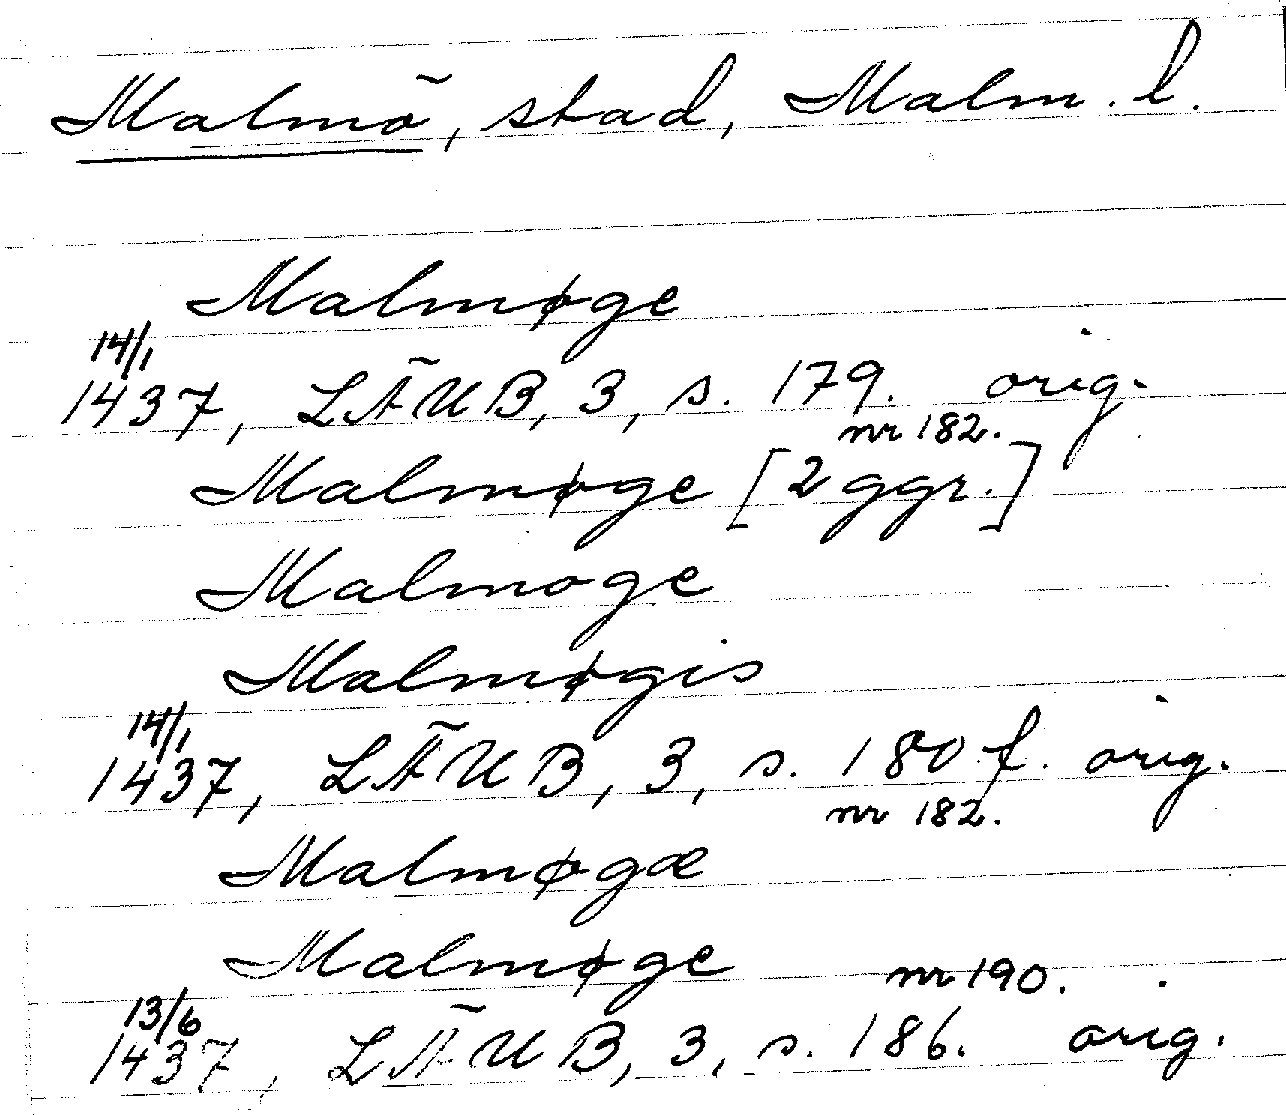 Malmö, stad, Malm. l.
Malmøge
14/1
1437, LÄUB, 3, s. 179. orig.
nr 182.
Malmøge [2 ggr.]
Malmoge
Malmøgis
14/1
1437, LÄUB, 3, s. 180 f. orig.
nr 182.
Malmøgæ
Malmøge nr 190.
13/6
1437, LÄUB, 3, s. 186. orig.